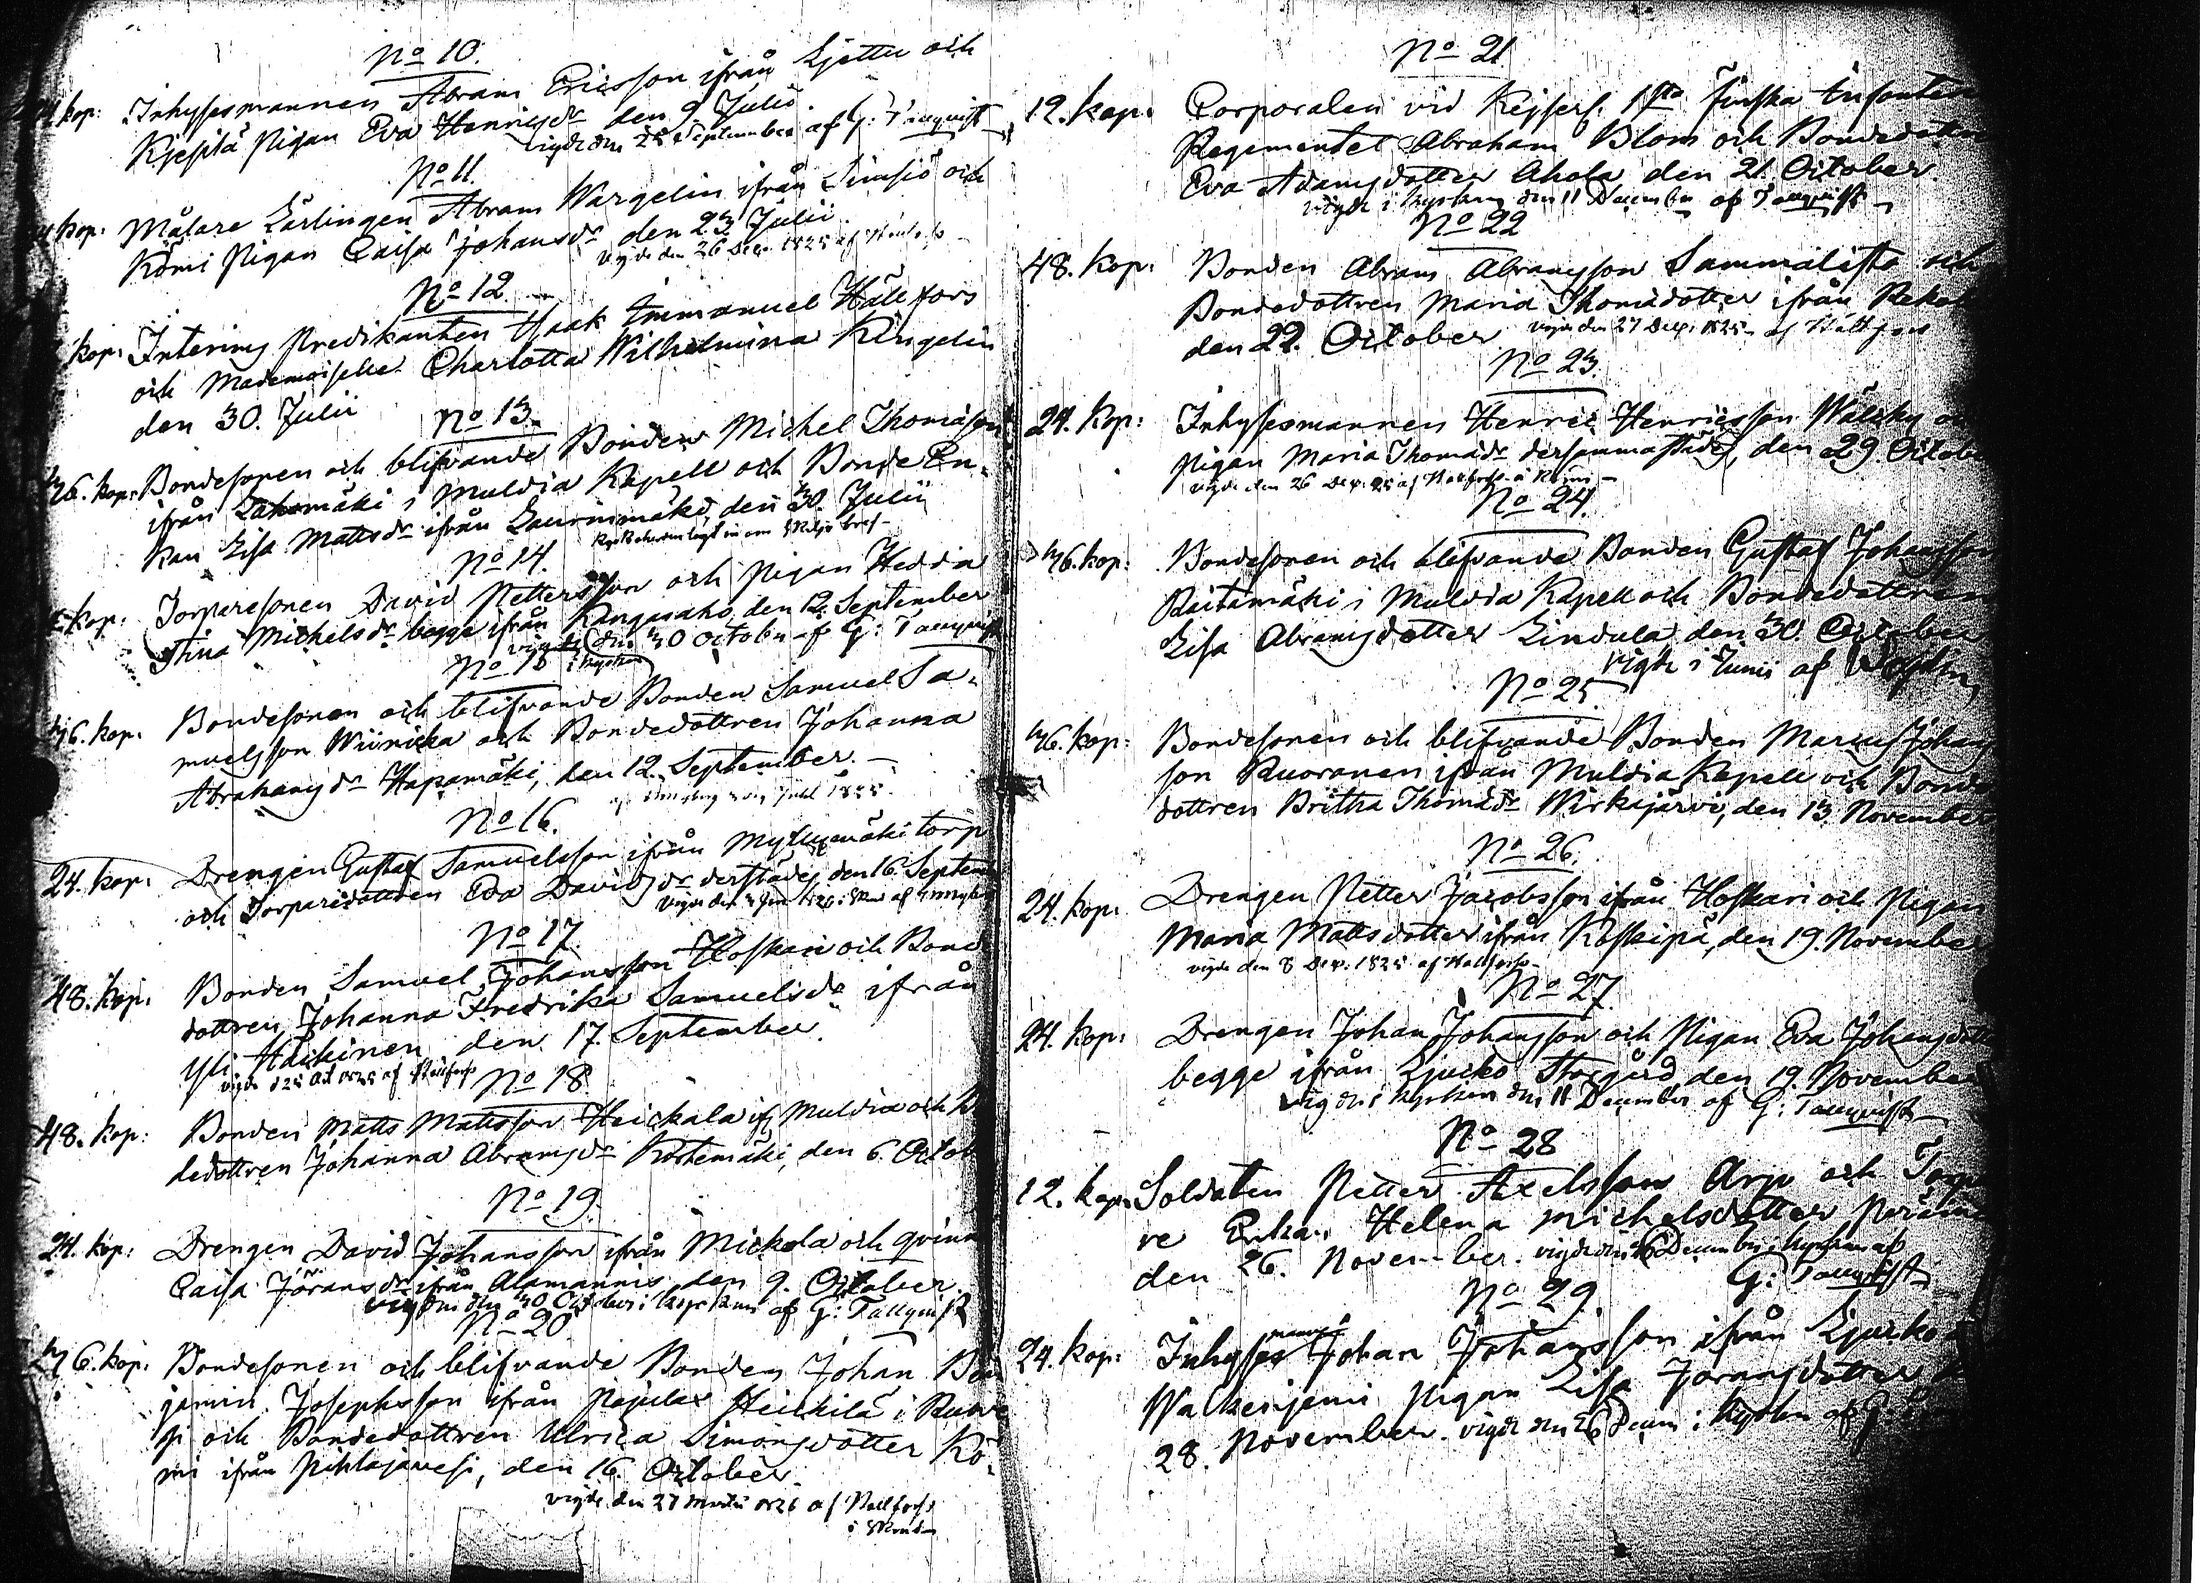 No 10.
kop: Inhysesmannen Abram Ericsson ifrån Ljettu och
Pigan Eva Henricsdr den 9 Julii.
vigde den 25 September af G: Tallqvist
No 11.
kop: Målare Lärlingen Abram Wargelin ifrån Simsiö och
Kömi Pigan Caisa Johansdr den 23 Julii.
vigde den 26 Dec. 1825 af
No 12.
kop: Interims Predikanten Isaak Emmanuel Hällfors
och Mademoiselle Charlotta Wilhelmina Ringelin
den 30. Julii
No 13.
36. kop: Bondesonen och blifvande Bonden Michel Thomasson
ifrån Lahomäki i Muldia Kapell och Bonde En-
kan Lisa Mattsdr ifrån den 30. Julii
No 14.
kop: Torparesonen David Pettersson och Pigan Hedda
Stina Michelsdr begge ifrån Kangasaho, den 12. September
vigde den 30 October af G: Tallqvist
i kyrkan
No 15
36. kop: Bondesonen och blifvande Bonden Samuel Sa-
muelsson Wiinicka och Bondedottren Johanna
Abrahamsdr Hapamäki, den 12. September.
No 16.
24. kop: Drengen Gustaf Samuelsson ifrån Myllymäki torp
och Torparedottren Eva Davidsdr derstädes den 16. Septem
No 17.
48. kop: Bonden Samuel Johansson Hoskari och Bond
dottren Johanna Fredrika Samuelsdr ifrån
Yli Häkinen den 17. September.
vigde d 25 Oct 1825 af Hällfors
No 18
48. kop: Bonden Matts Mattsson Heickala if. Muldia och
dedottren Johanna Abramsdr Kortemäki, den 6. Octob
No 19.
24. kop: Drengen David Johansson ifrån Mickola och qvinn
Caisa Jöransdr ifrån Alamannis den 9. October.
vigde den 30 October i kyrkan af G: Tallqvist
No 20
36. kop: Bondesonen och blifvande Bonden Johan Ben
jamin Josephsson ifrån Heickilä i Ruove
si och Bondedottren Ulrica Simonsdotter Kö-
mi ifrån Pihlajavesi, den 16. October.
vigde den 27 Martii 1826 af Hällfors
No 21
12. kop: Corporalen vid Kejserl. 1sta Finska Infanteri
Regementet Abraham Blom och Bondedotter
Eva Adamsdotter Ahola den 21. October.
vigde i kyrkan den 11 December af Tallqvist
No 22
48. kop: Bonden Abram Abramsson Sammalisto och
Bondedottren Maria Thomadotter ifrån
den 22. October vigde den 27 Dec. 1825 af Hällfors
No 23.
24. Kop: Inhysesmannen Henric Henricsson
Pigan Maria Thomadr dersammastädes, den 29. Octob
vigde den 26 Dec. 25 af Hällfors i Kömi
No 24.
36. kop: Bondesonen och blifvande Bonden Gustaf Johansson
Raitamäki i Muldia Kapell och Bondedottren
Lisa Abramsdotter Lindula den 30. October
vigde i Junii af
No 25.
36. kop: Bondesonen och blifvande Bonden Marcus Johans
son Ruoranen ifrån Muldia Kapell och Bonde
dottren Britha Thomadr Wirkajärvi, den 13. November
No 26.
24. kop: Drengen Petter Jacobsson ifrån Hoskari och Pigan
Maria Mattsdotter ifrån Koskipä, den 19. November
vigde den 8 Dec. 1825 af Hällfors
No 27
24. kop: Drengen Johan Johansson och Pigan Eva Johansdotter
begge ifrån Ljucko Storgård den 19. November
vigde i kyrkan den 11 December af G: Tallqvist
No 28
12. kop: Soldaten Petter Axelsson Arp och Torpa
re Enkan Helena Michelsdotter
den 26. November. vigde den 26 December i kyrkan af
G: Tallqvist
No 29.
24. kop: Inhyses mannen Johan Johansson ifrån Ljucko
Walkeisjemi Pigan Lisa Joransdotter
28. November. vigde den 26 Decem i kyrkan af